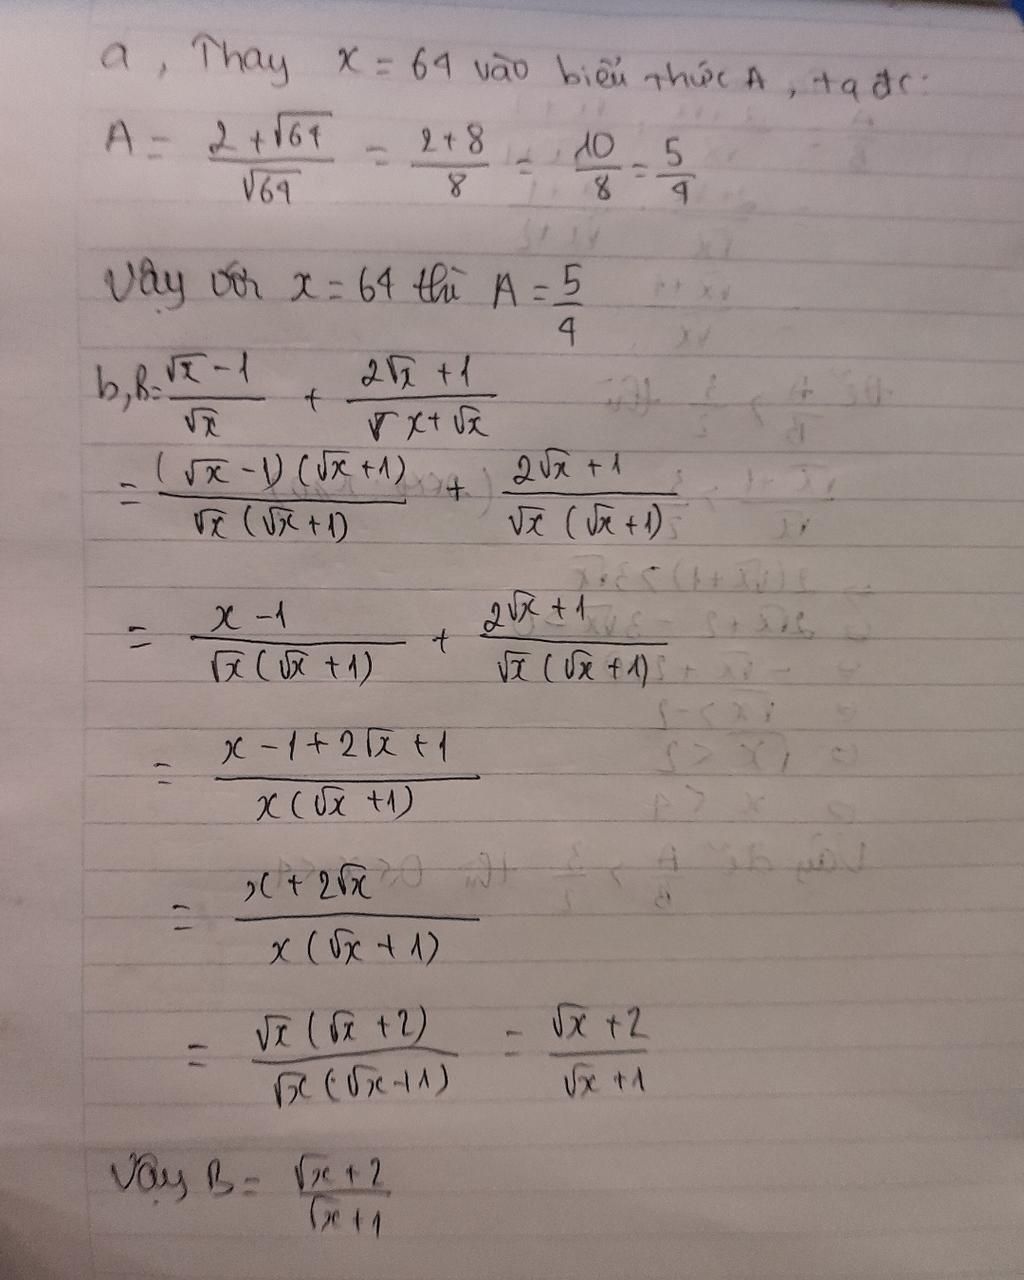 a, Thay x = 64 vào biểu thức A, ta đc:
A = (2 + √64)/√64 = (2 + 8)/8 = 10/8 = 5/4
Vậy với x = 64 thì A = 5/4
b, B = (√x - 1)/√x + (2√x + 1)/(x + √x)
= ((√x - 1)(√x + 1))/(√x (√x + 1)) + (2√x + 1)/(√x (√x + 1))
= (x - 1)/(√x (√x + 1)) + (2√x + 1)/(√x (√x + 1))
= (x - 1 + 2√x + 1)/(x (√x + 1))
= (x + 2√x)/(x (√x + 1))
= (√x (√x + 2))/(√x (√x + 1)) = (√x + 2)/(√x + 1)
Vậy B = (√x + 2)/(√x + 1)